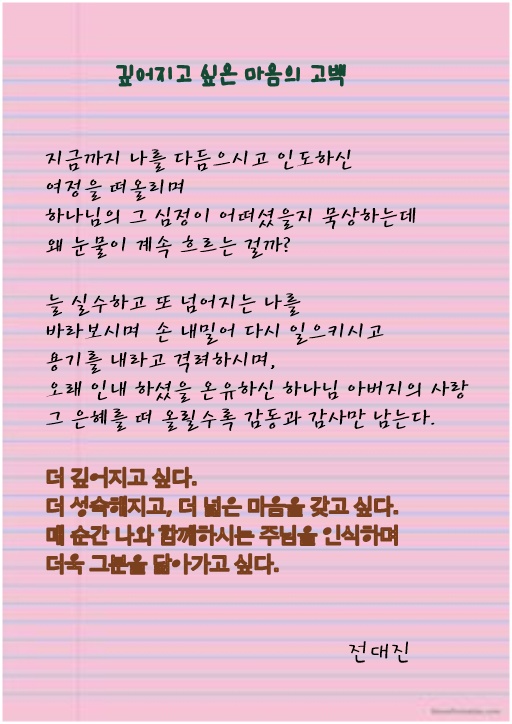 깊어지고 싶은 마음의 고백
지금까지 나를 다듬으시고 인도하신
여정을 떠올리며
하나님의 그 심정이 어떠셨을지 묵상하는데
왜 눈물이 계속 흐르는 걸까?
늘 실수하고 또 넘어지는 나를
바라보시며 손 내밀어 다시 일으키시고
용기를 내라고 격려하시며,
오래 인내 하셨을 온유하신 하나님 아버지의 사랑
그 은혜를 떠 올릴수록 감동과 감사만 남는다.
더 깊어지고 싶다.
더 성숙해지고, 더 넓은 마음을 갖고 싶다.
매 순간 나와 함께하시는 주님을 인식하며
더욱 그분을 닮아가고 싶다.
전대진